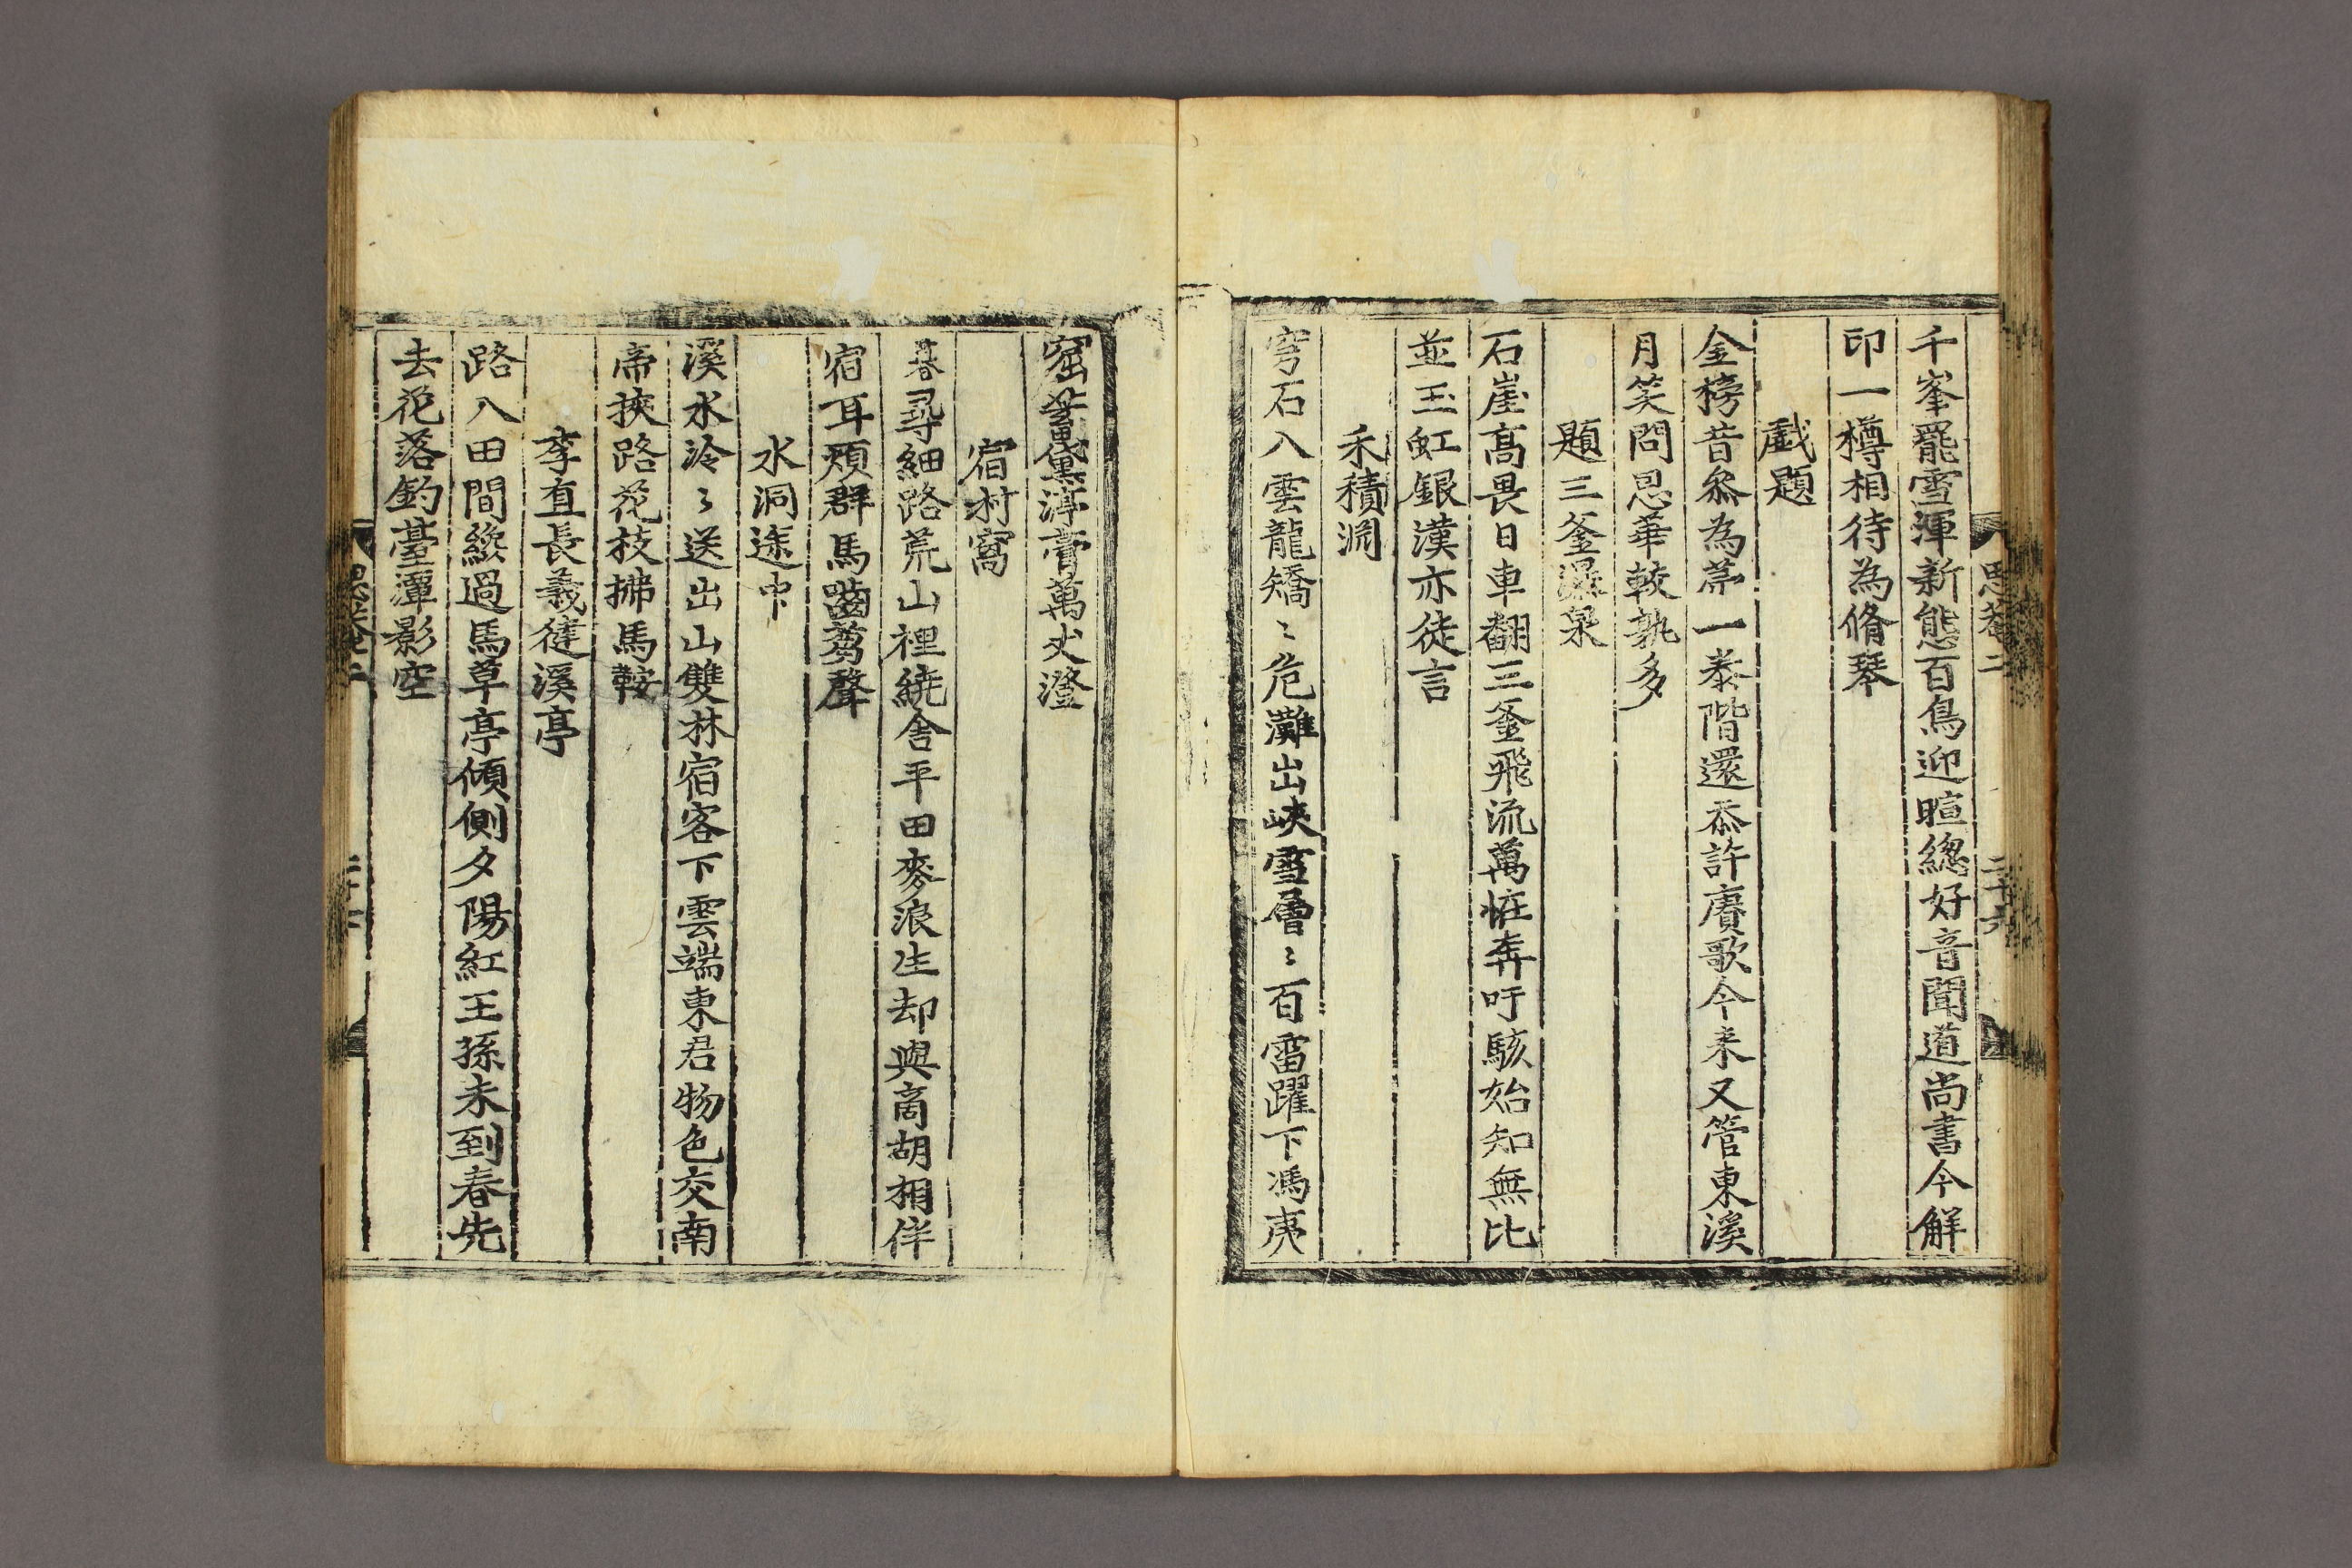 思菴二
二十六
千峯罷雪渾新態百鳥迎暄總好音聞道尚書今解
印一樽相待為脩琴
戱題
金榜昔叅為苐一泰階還忝許賡歌今来又管東溪
月笑問恩華較孰多
題三釜瀑泉
石崖高畏日車翻三釜飛流萬恠奔吁駭始知無比
並玉虹銀漢亦徒言
禾積淵
穹石入雲龍矯〻危灘出峽雪層〻百雷躍下馮夷
窟蓄黛渟膏萬丈澄
宿村窩
暮尋細路荒山裡繞舍平田麥浪生却與商胡相伴
宿耳煩群馬嚙蒭聲
水洞途中
溪水泠〻送出山雙林宿客下雲端東君物色交南
帝挾路花枝拂馬鞍
李直長義健溪亭
路入田間纔過馬草亭傾側夕陽紅王孫未到春先
去花落釣臺潭影空